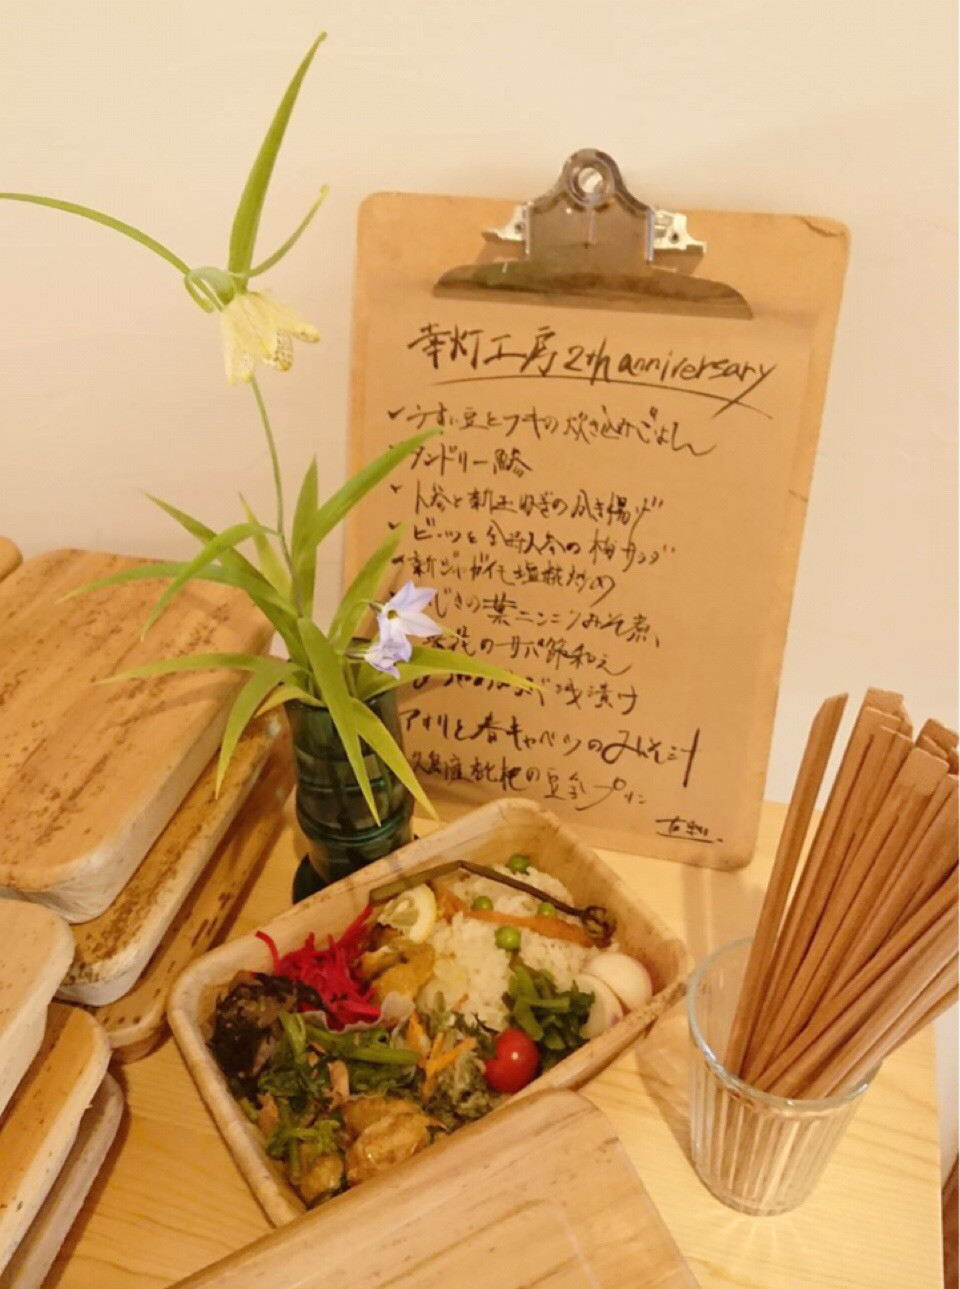 幸灯工房 2th anniversary
うすい豆とフキの炊き込みごはん
タンドリー
人参と新玉ねぎのかき揚げ
ビーツと金時人参の梅サラダ
新ジャガイモ塩糀炒め
じきの葉ニンニクみそ煮
花のサバ節和え
浅漬け
アオリと春キャベツのみそ汁
久島産枇杷の豆乳プリン